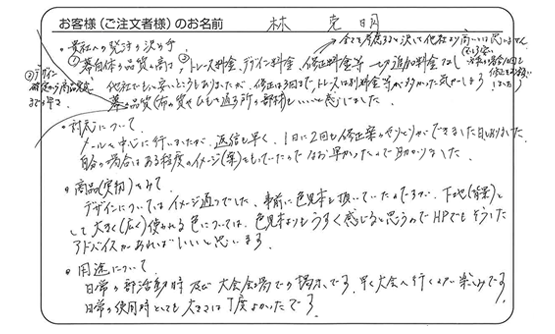 お客様(ご注文者様)のお名前 林 克明
・貴社への発注の決め手
①幕自体の品質の高さ、トレース料金、デザイン料金、修正料金等 追加料金なし
全てを考慮すると決して他社より高いとは思いません
他社でも、安いところもありましたが、修正は3回まで、トレースは別料金等があった
②デザイン
・対応について
メール中心に行いましたが、返信も早く、1日に2回も修正案のやりとりができました日もありました
自分の場合はある程度のイメージ(案)をもっていたのでなお早かったので助かりました
・商品(実物)をみて
デザインについてはイメージ通りでした、事前に色見本も頂いていたのですが、下地(背景)と
して大きく(広く)使われる色については、色見本よりもうすく感じると思うのでHPでもそういった
アドバイスがあればいいと思います
・用途について
日常の部活動時 及び 大会会場での掲示です 早く大会へ行くのが楽しみです
日常の使用時としても大きさは丁度よかったです